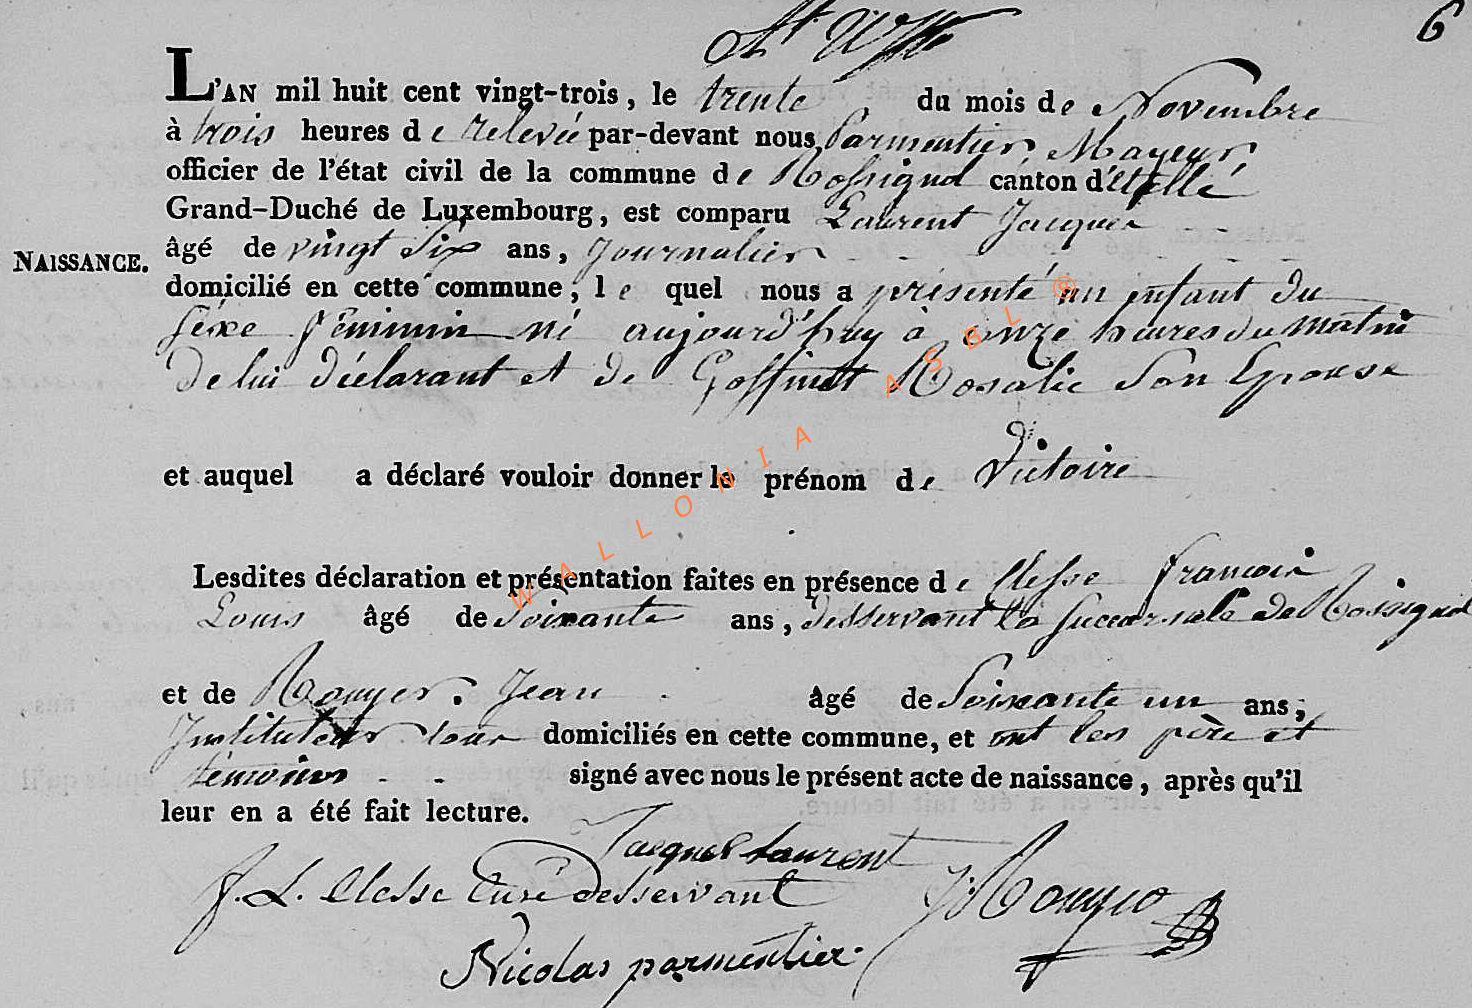 6
L'AN mil huit cent vingt-trois, le trente du mois de Novembre
à trois heures de relevée par-devant nous Parmentier, Mayeur,
officier de l'état civil de la commune de Rossignol canton d'étalle
Grand-Duché de Luxembourg, est comparu Laurent Jacques
NAISSANCE.
âgé de vingt Six ans, journalier
domicilié en cette commune, le quel nous a présenté un enfant du
séxe féminin né aujourd'huy à onze heures du matin
de lui déclarant et de Goffinet Rosalie Son Epouse
et auquel a déclaré vouloir donner le prénom de Victoire
WALLONIA ASBL ®
Lesdites déclaration et présentation faites en présence de Clesse francois
Louis âgé de Soixante ans, desservant la succursale de Rossignol
et de Rouyer. Jean âgé de Soixante un ans,
Instituteur tous domiciliés en cette commune, et ont les père et
témoins signé avec nous le présent acte de naissance, après qu'il
leur en a été fait lecture.
Jacques Laurent
f. L. Clesse Curé desservant J: Rouyer
Nicolas parmentier